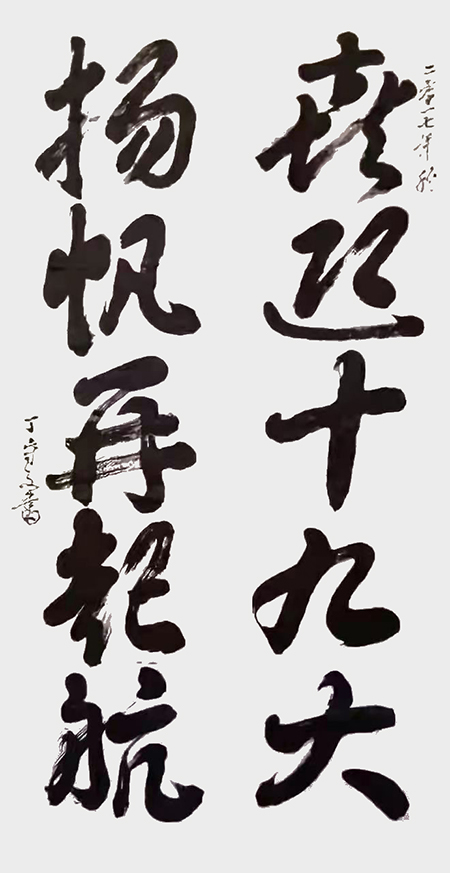 二零一七年
喜迎十九大
扬帆再起航
丁
書